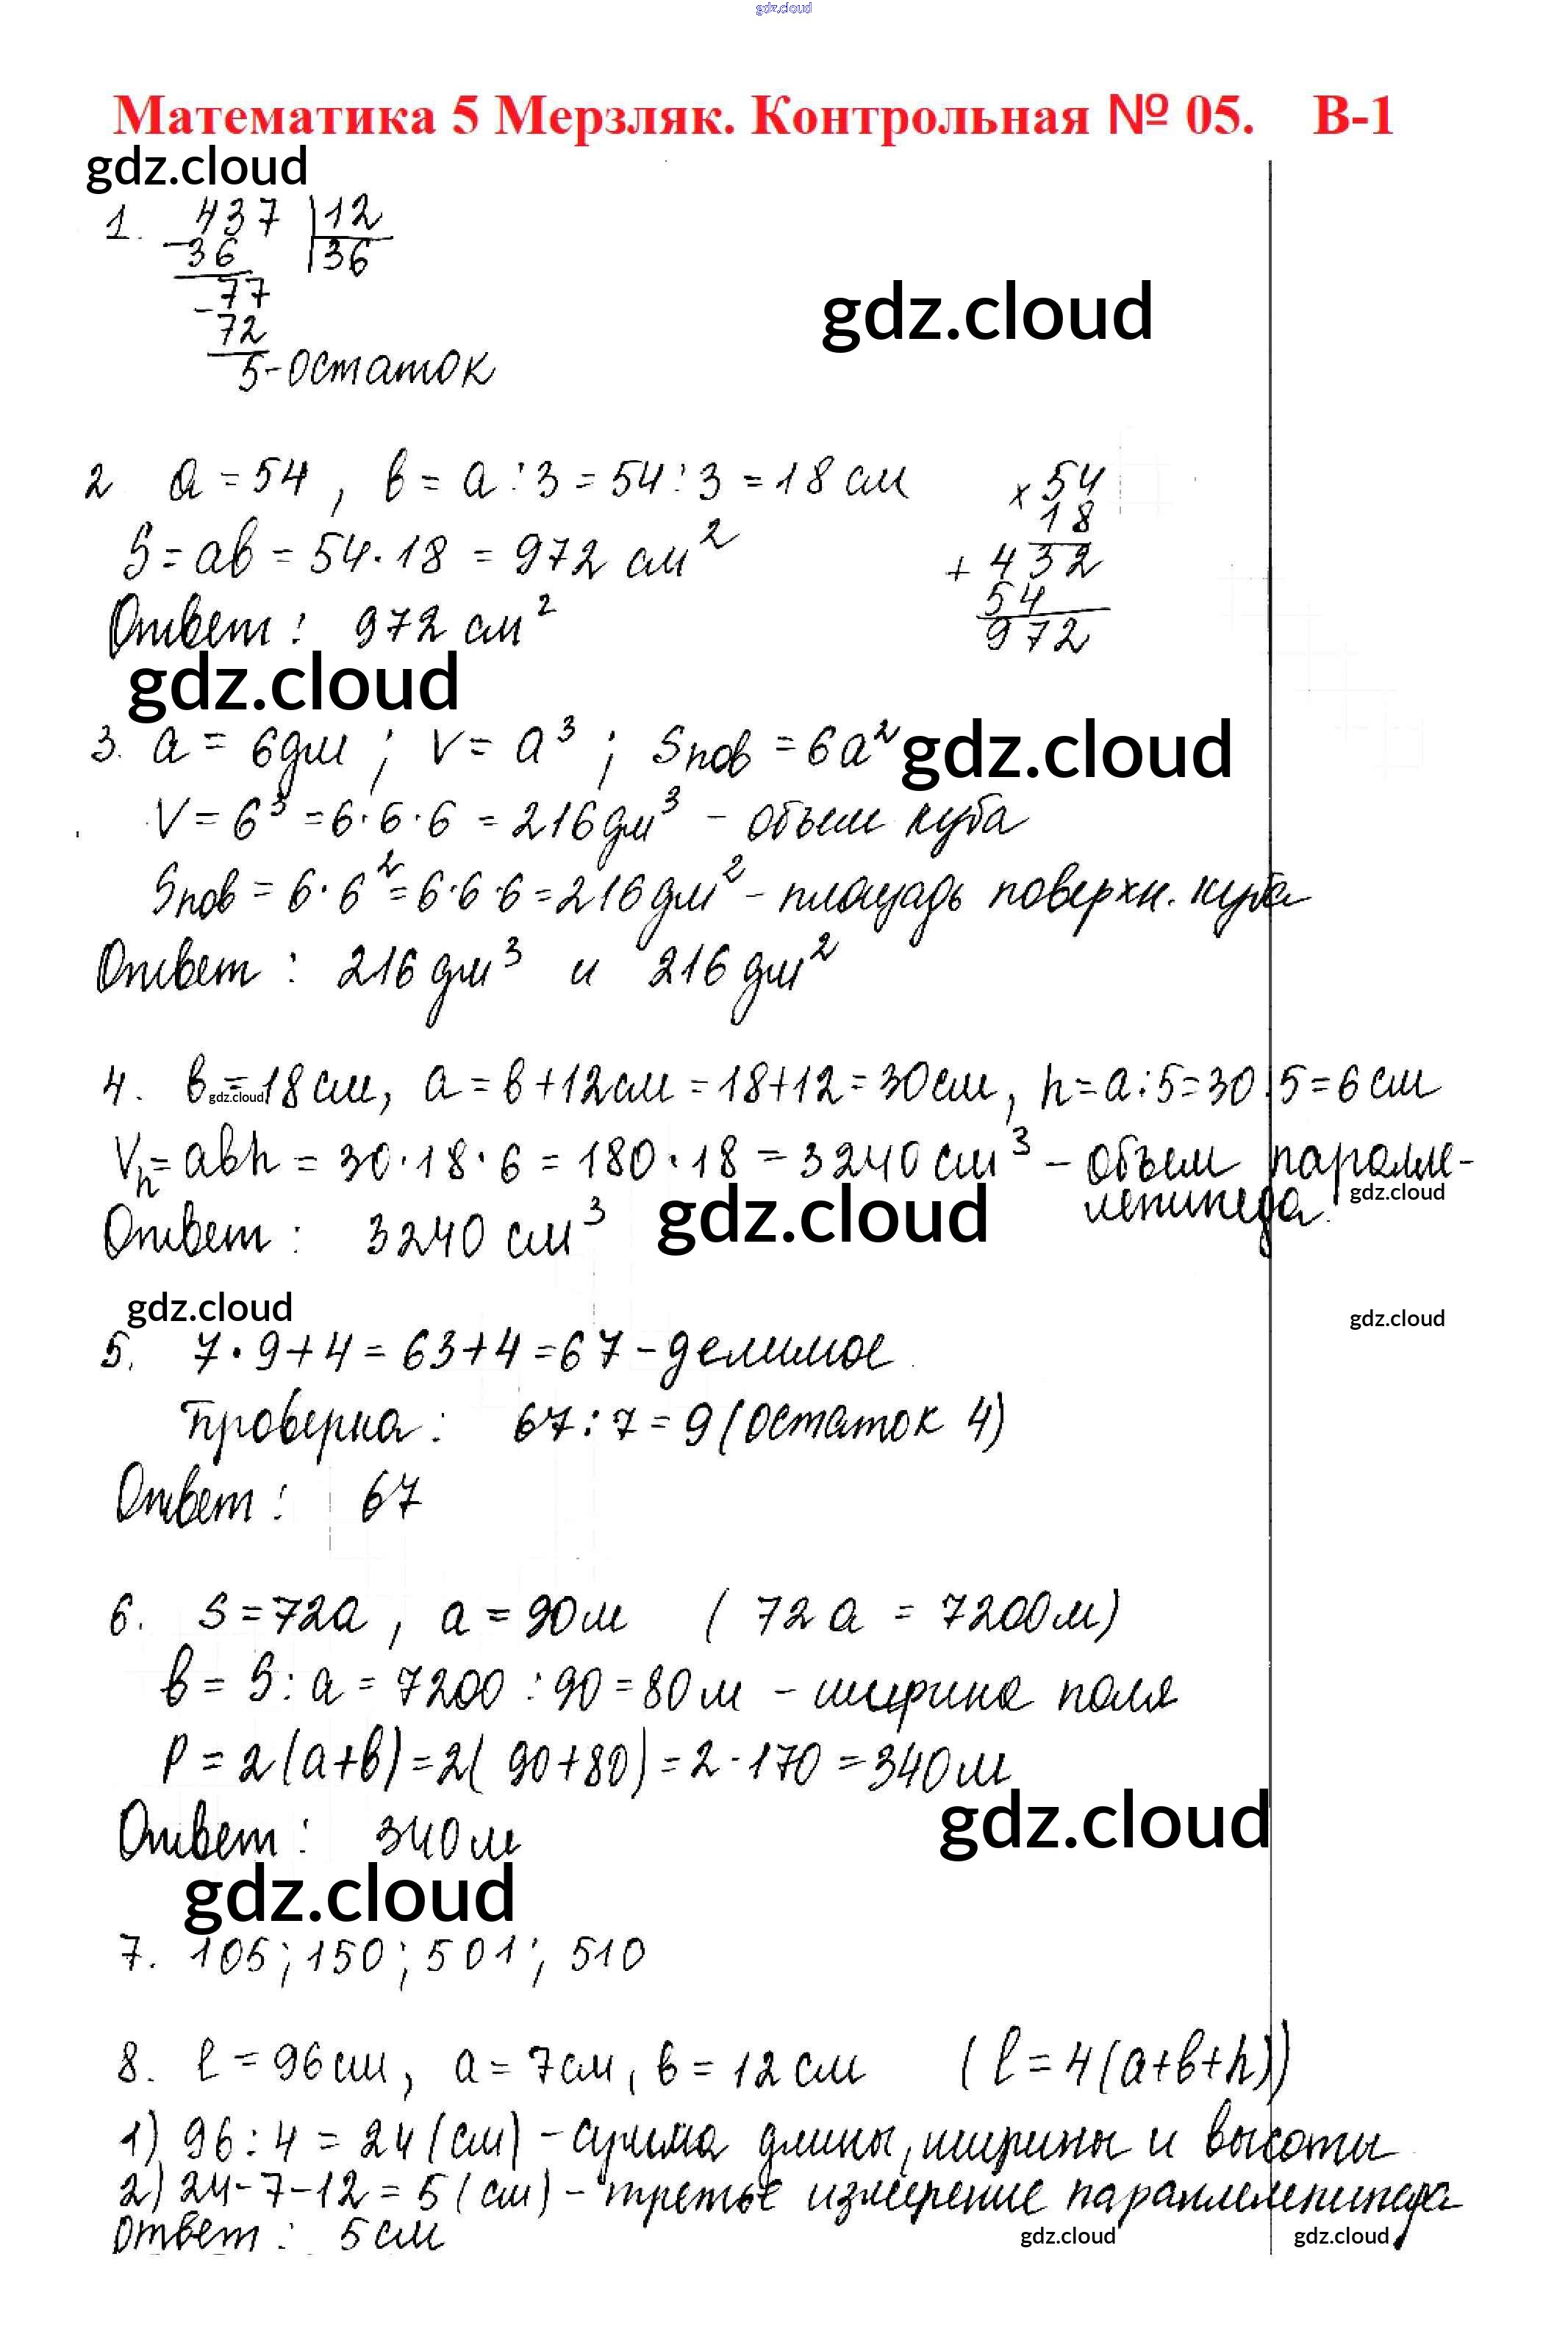 gdz.cloud
Математика 5 Мерзляк. Контрольная № 05. В-1
gdz.cloud
1. 437 | 12
- 36 | 36
- 77
72
5-остаток
gdz.cloud
2 a = 54 , b = a : 3 = 54 : 3 = 18 см
× 54
18
S = ab = 54 · 18 = 972 см²
+ 432
54
972
Ответ : 972 см²
gdz.cloud
3. a = 6 дм ; V = a³ ; Sпов = 6a²
gdz.cloud
V = 6³ = 6 · 6 · 6 = 216 дм³ - объем куба
Sпов = 6 · 6² = 6 · 6 · 6 = 216 дм² - площадь поверхн. куба
Ответ : 216 дм³ и 216 дм²
4. b = 18 см, a = b + 12 см = 18 + 12 = 30 см, h = a : 5 = 30 : 5 = 6 см
gdz.cloud
Vₕ = abh = 30 · 18 · 6 = 180 · 18 = 3240 см³ - объем паралле-
лепипеда.
gdz.cloud
Ответ : 3240 см³
gdz.cloud
gdz.cloud
gdz.cloud
5. 7 · 9 + 4 = 63 + 4 = 67 - делимое
Проверка : 67 : 7 = 9 (остаток 4)
Ответ : 67
6. S = 72 a , a = 90 м ( 72 a = 7200 м)
b = S : a = 7200 : 90 = 80 м - ширина поля
P = 2 (a + b) = 2( 90 + 80) = 2 · 170 = 340 м
gdz.cloud
Ответ : 340 м
gdz.cloud
7. 105 ; 150 ; 501 ; 510
8. l = 96 см , a = 7 см, b = 12 см (l = 4 (a + b + h))
1) 96 : 4 = 24 (см) - сумма длины, ширины и высоты
2) 24 - 7 - 12 = 5 (см) - третье измерение параллелепипеда
Ответ : 5 см
gdz.cloud
gdz.cloud